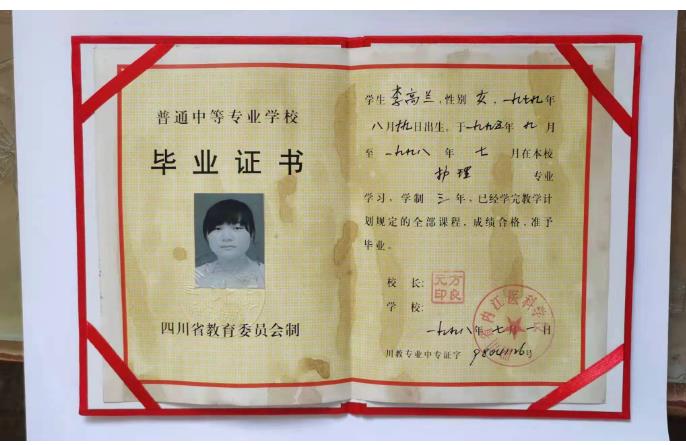 普通中等专业学校
毕业证书
四川省教育委员会制
学生 李高兰，性别 女，一九七九年
八月 日出生，于一九九五年 九 月
至 一九九八 年 七 月在本校
护理 专业
学习，学制 三 年，已经学完教学计
划规定的全部课程，成绩合格，准予
毕业。
校 长:
元方
印良
学 校:
省内江医科学校
一九九八年 七 月 一 日
川教专业中专证字 98041126号